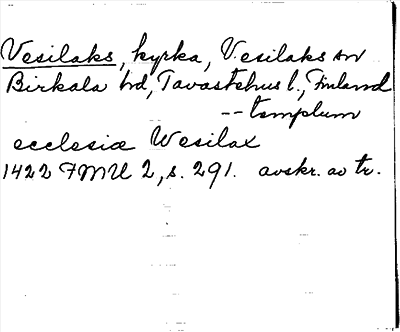 Vesilaks, kyrka, Vesilaks sn
Birkala hd, Tavastehus l., Finland
-- templum
ecclesia Wesilax
1422 FMU 2, s. 291. avskr. av tr.